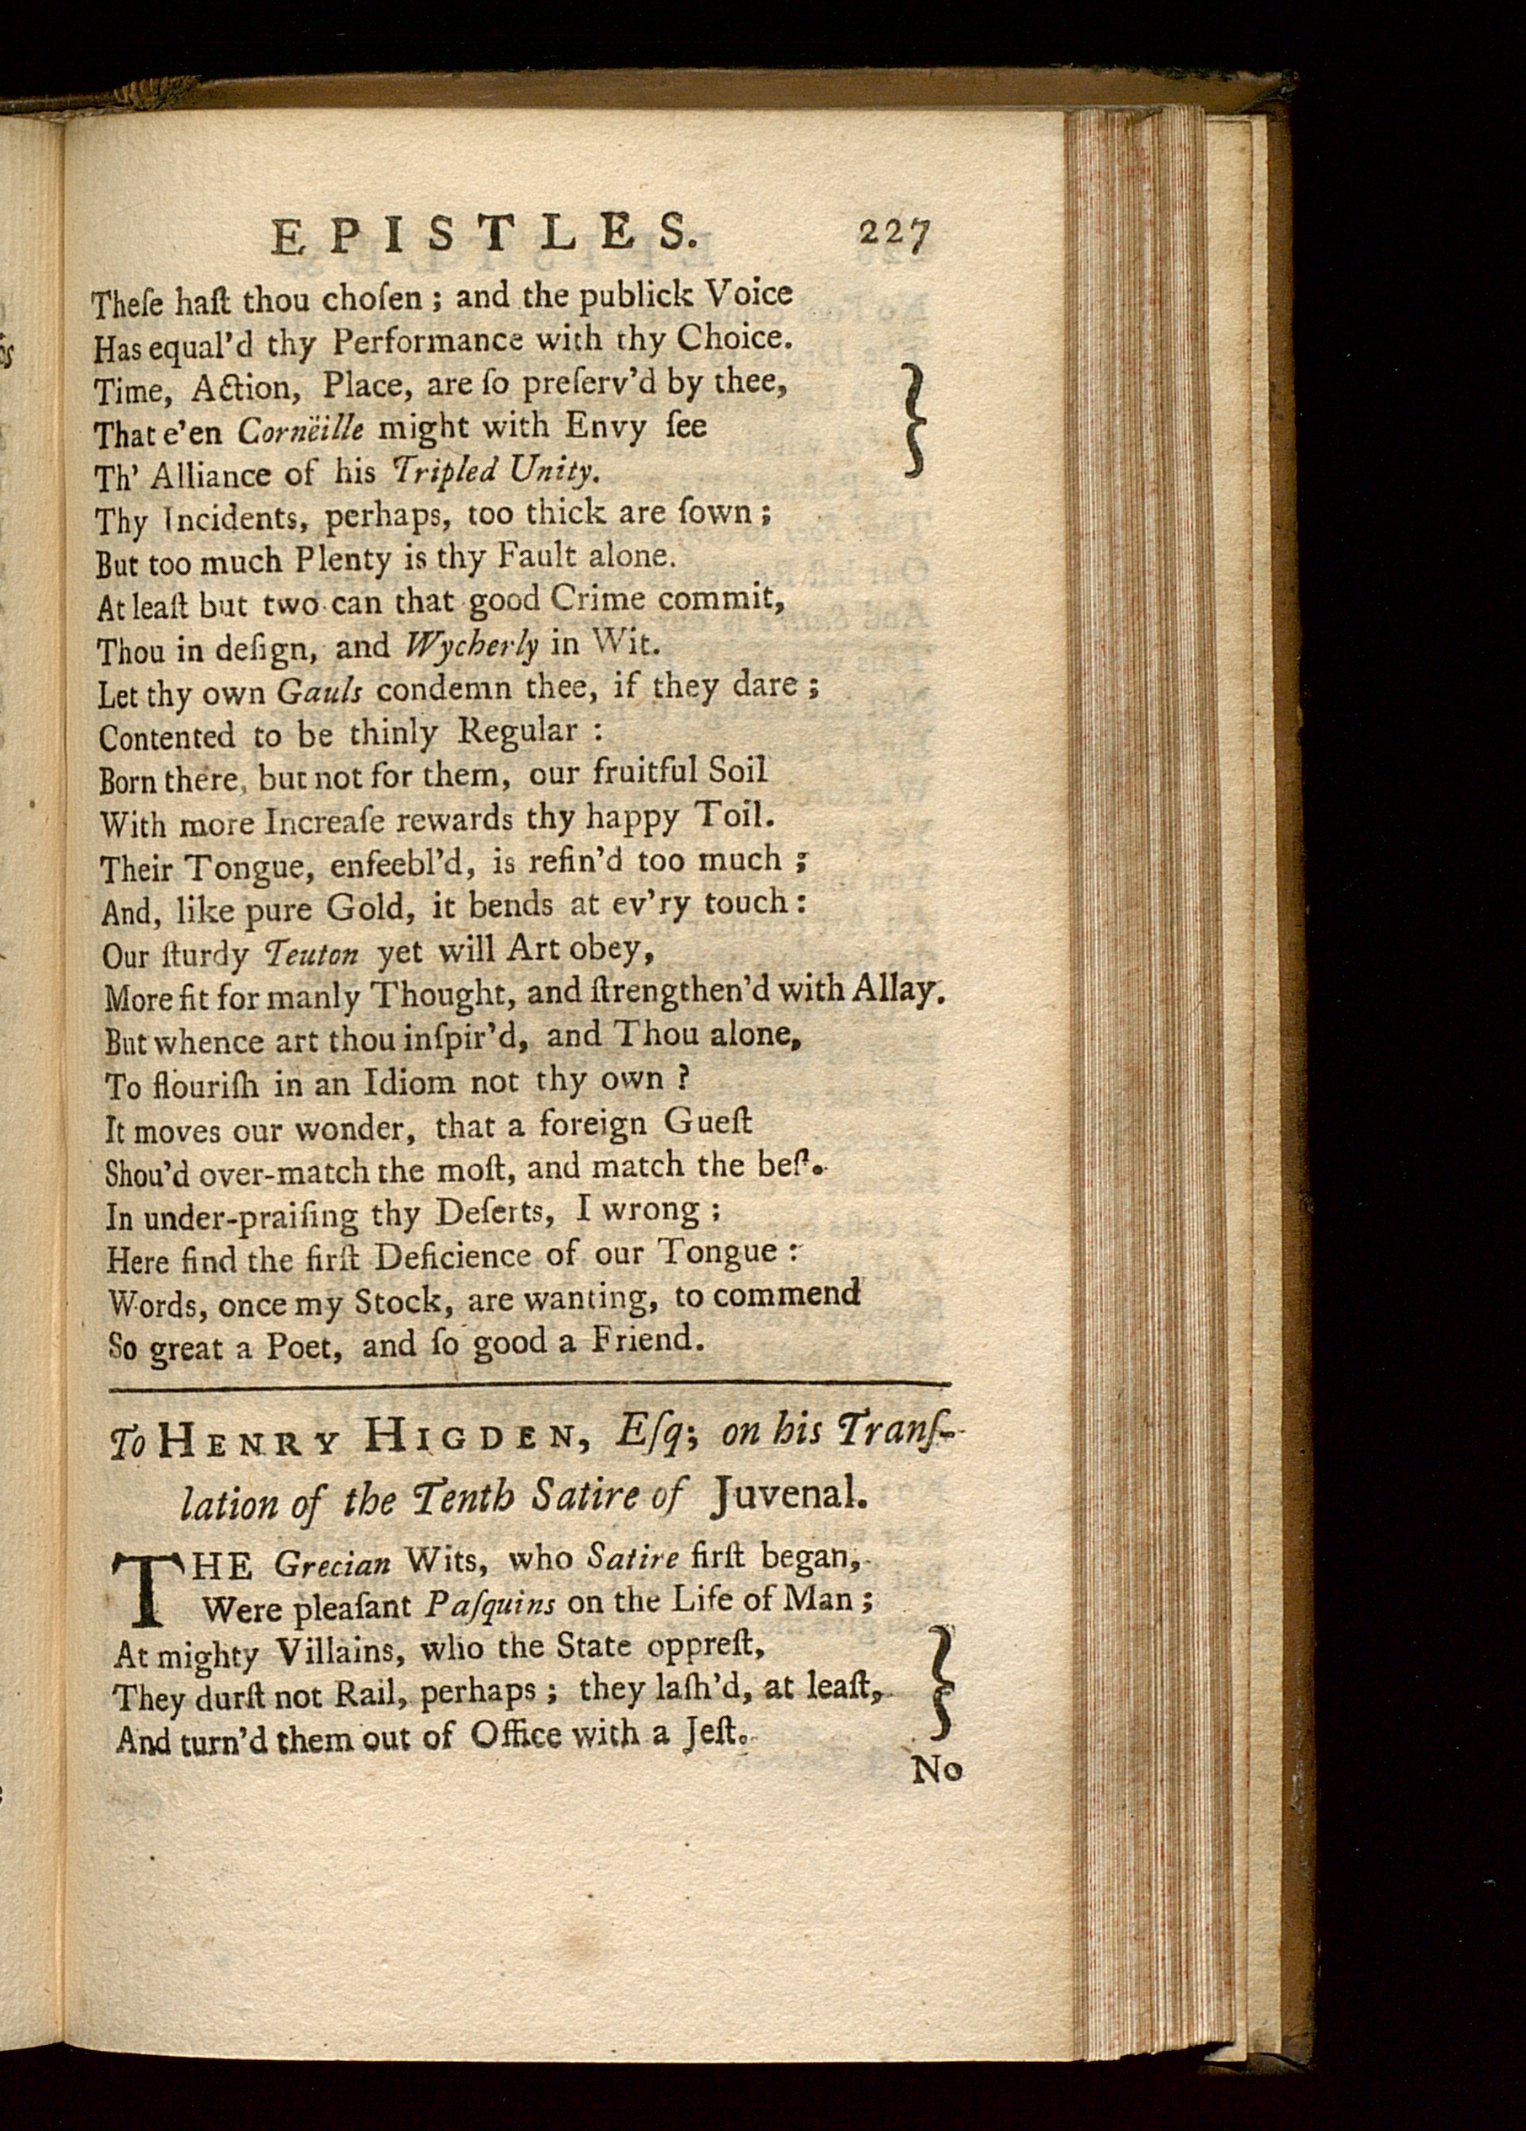 EPISTLES. 227
Theſe haſt thou choſen; and the publick Voice
Has equal'd thy Performance with thy Choice.
Time, Action, Place, are ſo preſerv'd by thee,
That e'en Cornëille might with Envy ſee
Th' Alliance of his Tripled Unity.
Thy Incidents, perhaps, too thick are ſown;
But too much Plenty is thy Fault alone.
At leaſt but two can that good Crime commit,
Thou in deſign, and Wycherly in Wit.
Let thy own Gauls condemn thee, if they dare;
Contented to be thinly Regular:
Born there, but not for them, our fruitful Soil
With more Increaſe rewards thy happy Toil.
Their Tongue, enfeebl'd, is refin'd too much;
And, like pure Gold, it bends at ev'ry touch:
Our ſturdy Teuton yet will Art obey,
More fit for manly Thought, and ſtrengthen'd with Allay.
But whence art thou inſpir'd, and Thou alone,
To flouriſh in an Idiom not thy own?
It moves our wonder, that a foreign Gueſt
Shou'd over-match the moſt, and match the beſt.
In under-praiſing thy Deſerts, I wrong;
Here find the firſt Deficience of our Tongue:
Words, once my Stock, are wanting, to commend
So great a Poet, and ſo good a Friend.
To HENRY HIGDEN, Eſq; on his Tranſ-
lation of the Tenth Satire of Juvenal.
THE Grecian Wits, who Satire firſt began,
Were pleaſant Paſquins on the Life of Man;
At mighty Villains, who the State oppreſt,
They durſt not Rail, perhaps; they laſh'd, at leaſt,
And turn'd them out of Office with a Jeſt.
No